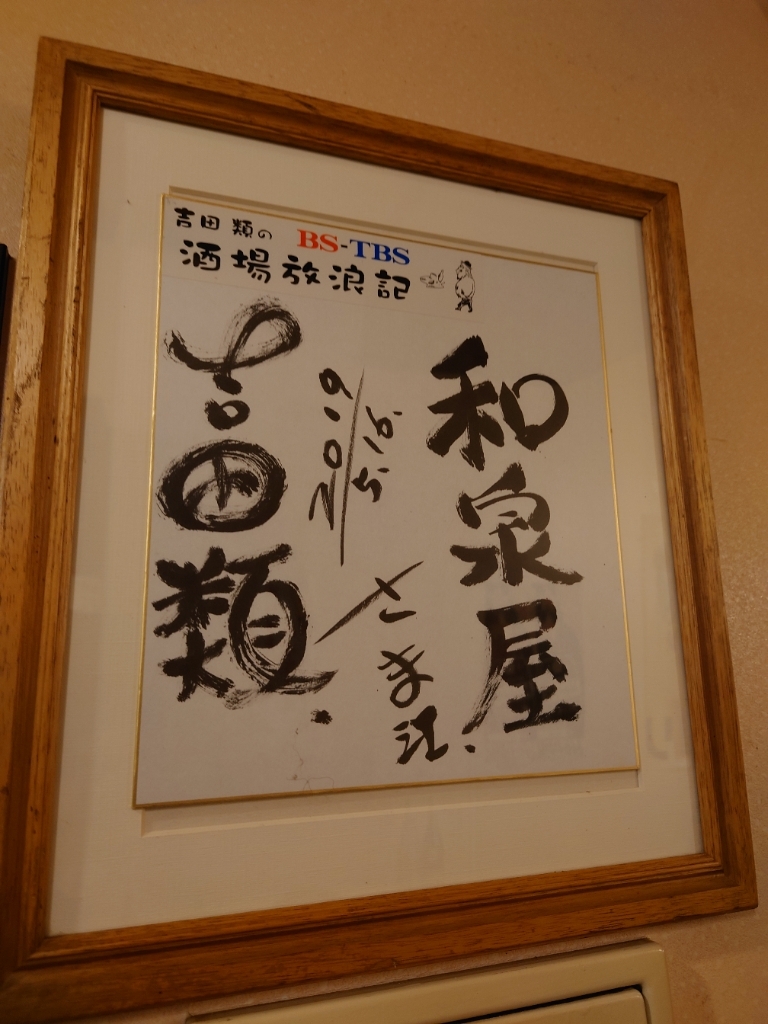 吉田類の
BS-TBS
酒場放浪記
和泉屋
さま江
2019
5.16.
吉田類